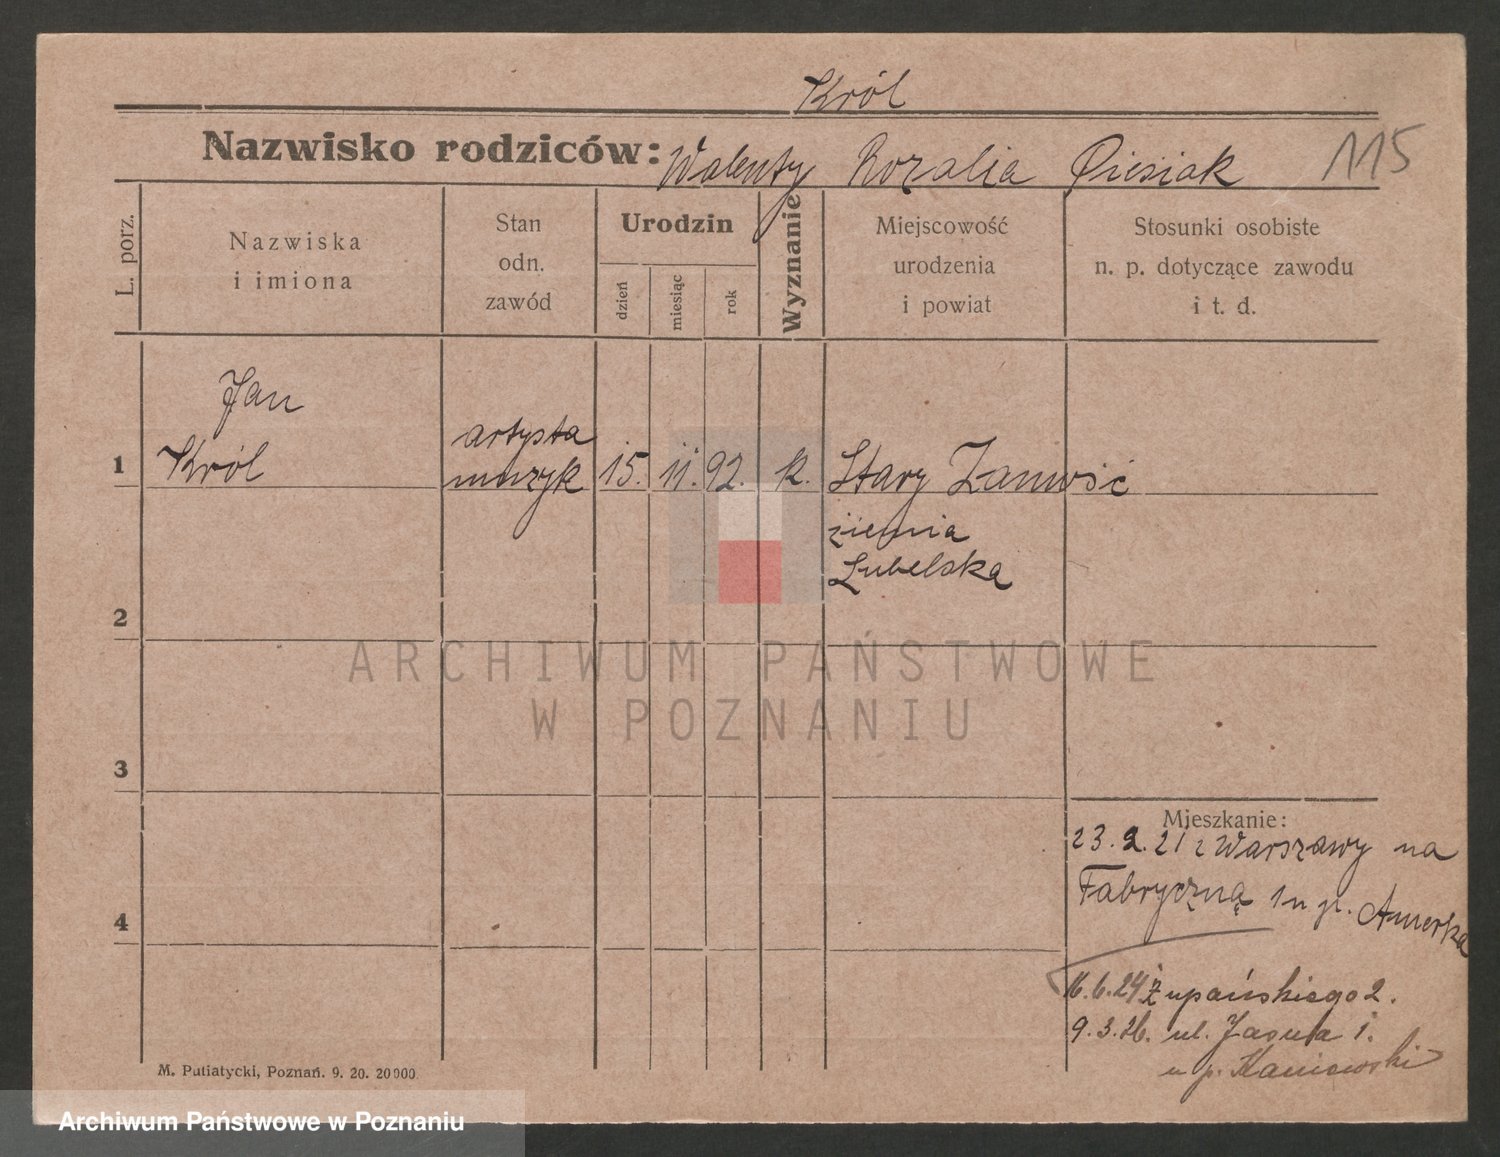 Król
Nazwisko rodziców: Walenty Rozalia Piesiak 115
L. porz.
Nazwiska
i imiona
Stan
odn.
zawód
Urodzin
dzień
miesiąc
rok
Wyznanie
Miejscowość
urodzenia
i powiat
Stosunki osobiste
n. p. dotyczące zawodu
i t. d.
Jan
artysta
1 Król muzyk 15. 11. 92. k. Stary Zamość
ziemia
Lubelska
2
ARCHIWUM PAŃSTWOWE
W POZNANIU
3
Mieszkanie:
23. 2. 21 z Warszawy na
Fabryczną 1 u p.
4
16.6.24 Żupańskiego 2.
9.3.26. ul. Jasna 1.
u p. Kaniewski
M. Putiatycki, Poznań. 9. 20. 20000.
Archiwum Państwowe w Poznaniu